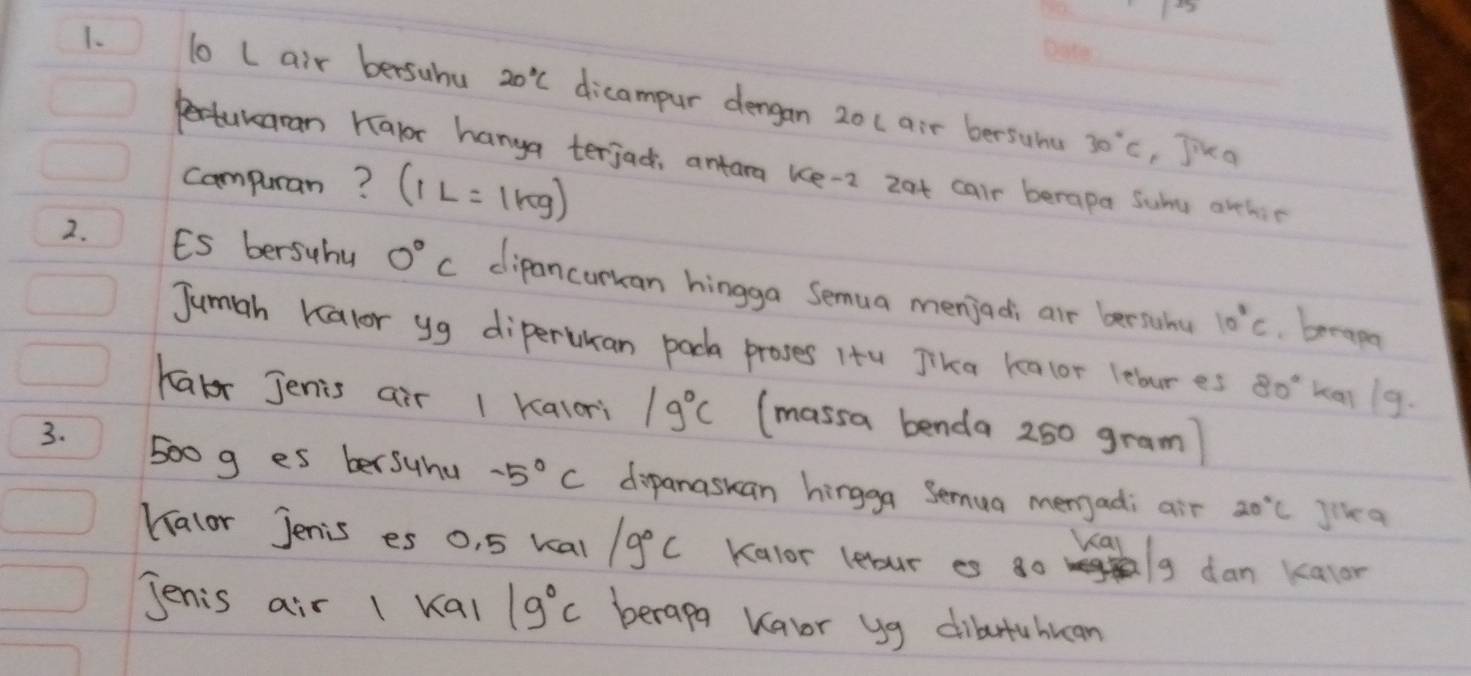 No.
Date
1. 10 L air bersuhu 20°C dicampur dengan 20L air bersuhu 30°C, Jika
Pertukaran Kalor hanya terjadi antara ke-2 zat cair berapa suhu akhir
campuran? (1 L = 1 kg)
2. ES bersuhu 0°C dipancurkan hingga semua menjadi air bersuhu 10°C. berapa
Jumlah kalor yg diperlukan pada proses itu Jika kalor lebur es 80° kal/g.
Kalor Jenis air 1 kalori /g°C (massa benda 250 gram)
3. 500 g es bersuhu -5°C dipanaskan hingga semua menjadi air 20°C Jika
Kalor Jenis es 0,5 kal /g°C Kalor lebur es 80 kal/g dan kalor
Jenis air 1 kal /g°C berapa kalor yg dibutuhkan